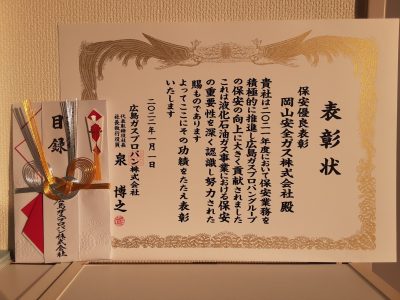 表彰状
保安優良表彰
岡山安全ガス株式会社 殿
貴社は二〇二一年度において保安業務を
積極的に推進し広島ガスプロパングループ
の保安の向上に大きく貢献されました
これは液化石油ガス事業における保安
の重要性を深く認識し努力された
賜ものであります
よってここにその功績をたたえ表彰
いたします
二〇二二年一月一日
広島ガスプロパン株式会社
代表取締役社長
社長執行役員
泉 博之
目録
広島ガスプロパン株式会社